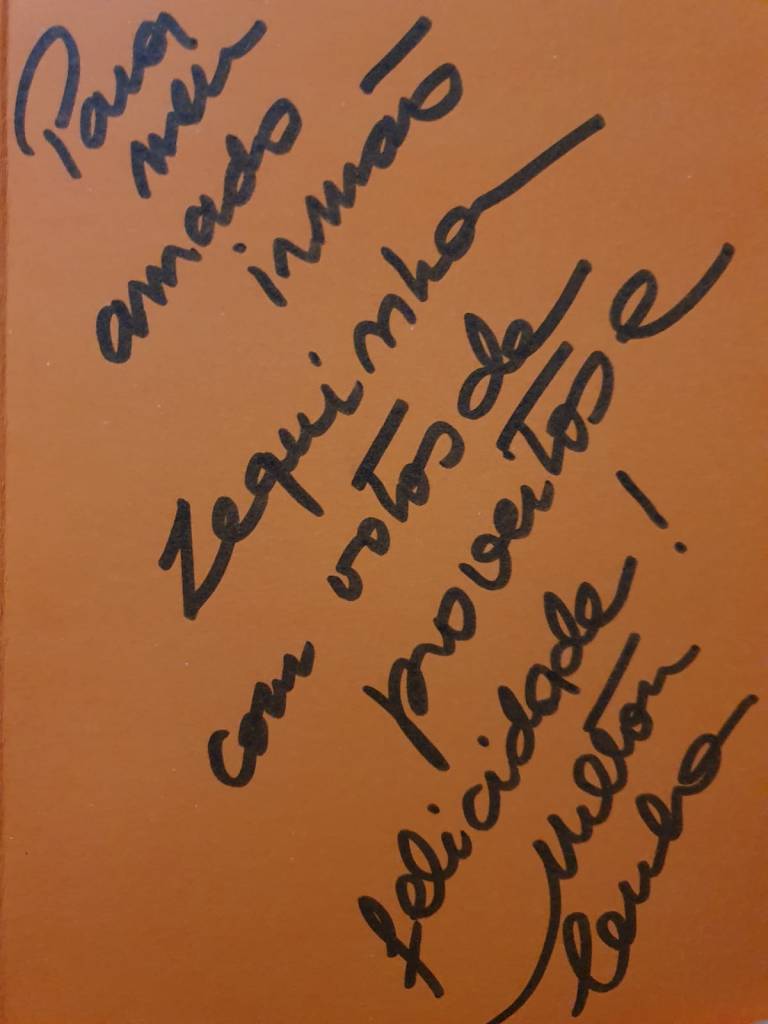 Para
meu
amado
irmão
Zequinha
com votos de
proventos e
felicidade!
Milton
Cunha